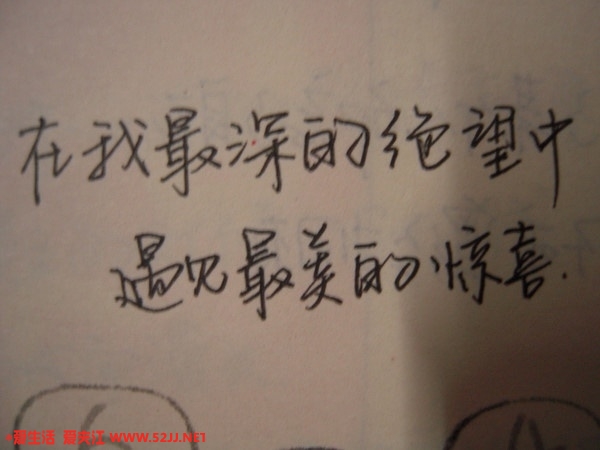 在我最深的绝望中
遇见最美的惊喜.
WWW.52JJ.NET